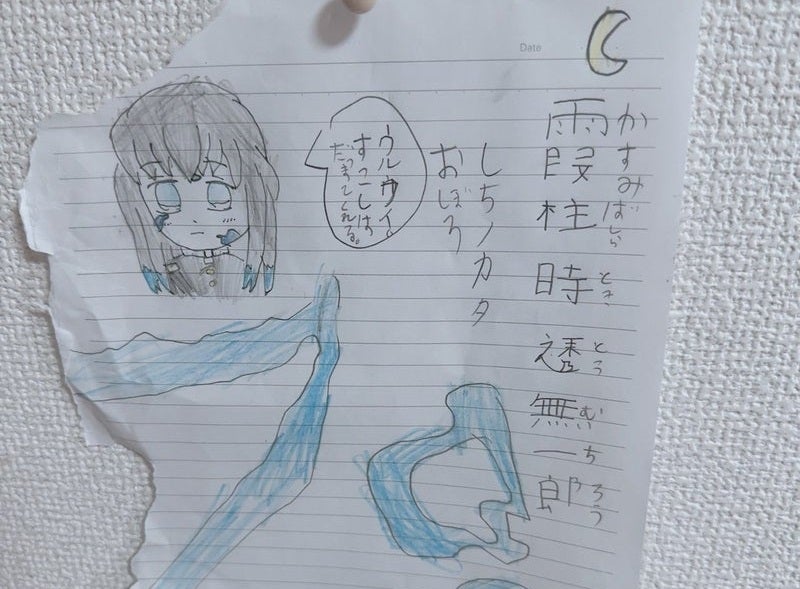 Date
霞柱 時透 無一郎
かすみばしら とき とう むいちろう
しちノカタ
おぼろ
ウルサイ。
すこしは
だまってくれる。